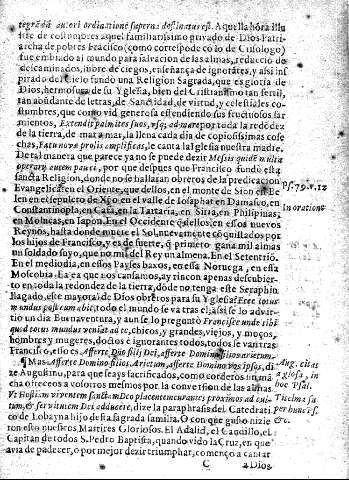 tegrada autori ordinatione superna destinatus est. Aquella hora illu
tre de costumbres aquel familiarissimo privado de Dios Patri-
archa de pobres Frãcisco (como corresponde cõ lo de Crisologo)
fue embiado al mundo para salvacion de las almas, reducciõ de
descaminados, lũbre de ciegos, enseñança de ignorãtes, y assi ins
pirado del cielo fundò una Religion Sagrada, que es gloria de
Dios, hermosura de su Yglesia, bien del Cristianismo tan fertil,
tan abũdante de letras, de Sanctidad, de virtud, y celestiales co
stumbres, que como vid generosa estendiendo sus fructiosos sar
mientos, Extendit palmites suos, usq; ad mare por toda la redõdez
de la tierra, de mar a mar, la llena cada dia de copiosissimas cose
chas, Fætu novæ prolis amplificas, le canta la Iglesia nuestra madre.
De tal manera que parece ya no se puede dezir Messis quidẽ multa
operarij autem pauci, por que despues que Francisco fundò esta
sancta Religion, donde no se hallaran obreros de la predicacion
Evangelica? en el Oriente, que dellos, en el monte de Sion est Be
len en el sepulcro de Xpo. en el valle de Iosaphat en Damasco, en
Constantinopla, en Cata, en la Tartaria, en Sitra, en Philipinas,
en Molucas, en Iapon. En el Occidente q̃ dellos! en estos nuevos
Reynos, hasta donde muere el Sol, nuevemẽte cõ quistados por
los hijos de Francisco, y es de fuerte, q̃ primero gana mil almas
un soldado suyo, que no mil del Rey un almena. En el Setentriõ.
En el mediodia, en essos Payses baxos, en essa Noruega, en essa
Moscobia. Ea ea que nos cansamos, ay rincon apenas descubier-
to en toda la redondez de la tierra, dõde no tenga este Seraphin
llagado, este mayoral de Dios obreros para su Yglesia? Ecce totus
mundus post eum abit, todo el mundo se va tras el assi se lo advir-
tio un dia Buenaventura, y aun se lo preguntò Francisce unde tibi
quod totus mundus veniat ad te, chicos, y grandes, viejos, y moços,
hombres y mugeres, doctos e ignorantes todos, todos se van tras
Francisco, esto es Afferte Domino filij Dei, afferte Domino filios arietum.
¶ Mas Afferte Domino filios Arietum, afferte Domino vos ipsos, di
ze Augustino, para que seays sacrificados, como corderos un ma
cha ofreceos a vosotros mesmos por la convertion de las almas
Vt Hostiam viventem sanctam Deo placentem curantes proximos ad cul-
tum, & servitutem Dei adducere, dize la paraphrasis del Catedrati
co de Lobayna hijo desta sagrada familia. O con que gusto hizie
ron esto nuestros Martires Gloriosos. El Adalid, el Caudillo, el
Capitan de todos S. Pedro Baptista, quando vido la Cruz, en que
avia de padecer, o por mejor dezir triumphar, començò a cantar
C
a Dios.
Ps. 79. v. 12
In oratione
Aug. citat
a glosa, in
hoc Psal.
Titelma sa
per hunc ps.
&c.